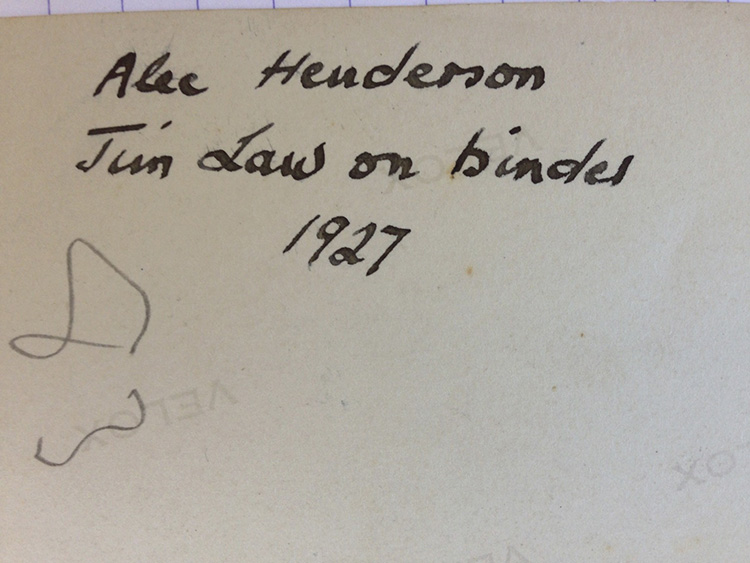 Alec Henderson
Jim Law on binder
1927
VELOX